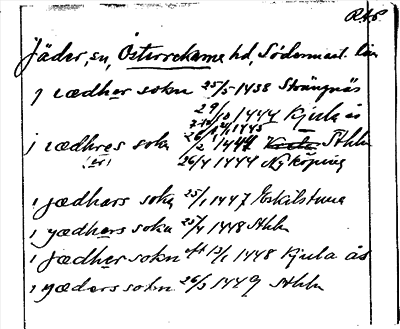 RAP.
Jäder, sn, Österrekarne hd, Södermanl. län
j iædher sokn 25/5 1438 Strängnäs
29/10 1444 Kjula ås
j iædhres sokn 26/2 1444 Sthlm
(er) 26/4 1444 Nyköping
i jædhars sokn 25/1 1447 Eskilstuna
i yædhers sokn 25/4 1448 Sthlm
i jædher sokn aft 13/1 1448 Kjula ås
i yæders sokn 26/3 1449 Sthlm